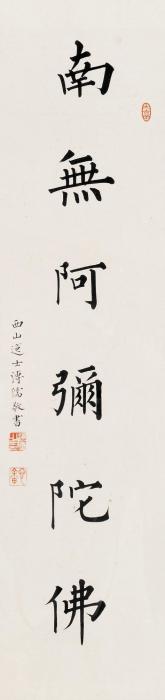 南無阿彌陀佛
西山逸士溥儒敬書